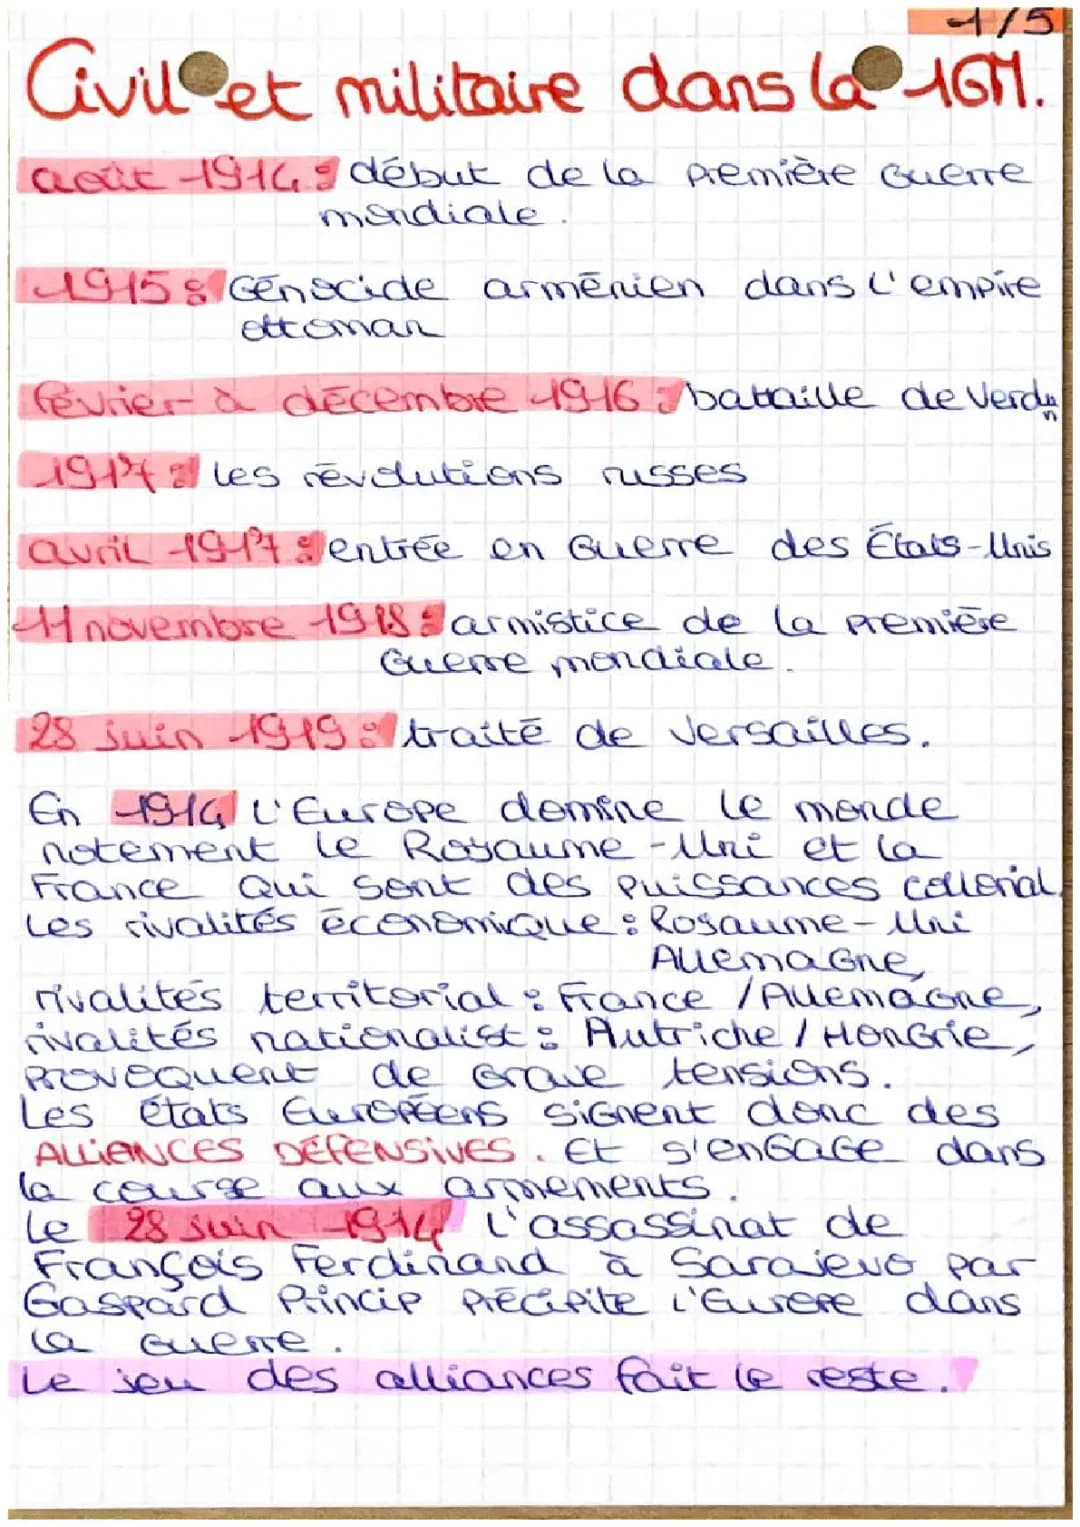 1/5
Civil et militaire dans la 1GM.
août 1914 : début de la première Guerre
mondiale.
1915 : Génocide arménien dans l'empire
ottoman
février à décembre 1916 : bataille de Verdun
1917 : les révolutions russes
avril 1917 : entrée en Guerre des États-Unis
11 novembre 1918 : armistice de la première
Guerre mondiale.
28 juin 1919 : traité de Versailles.
En 1914 l'Europe domine le monde
notement le Royaume-Uni et la
France Qui sont des puissances collonial.
Les rivalités économique : Rosaume-Uni
Allemagne,
rivalités territorial : France / Allemagne,
rivalités nationalist : Autriche / Hongrie,
provoquent de Grave tensions.
Les états Européens signent donc des
ALLIANCES DÉFENSIVES. Et s'enGaGe dans
la course aux armements.
Le 28 juin 1914 l'assassinat de
François Ferdinand à Sarajevo par
Gaspard Princip précipite l'Europe dans
la Guerre.
Le jeu des alliances fait le reste.